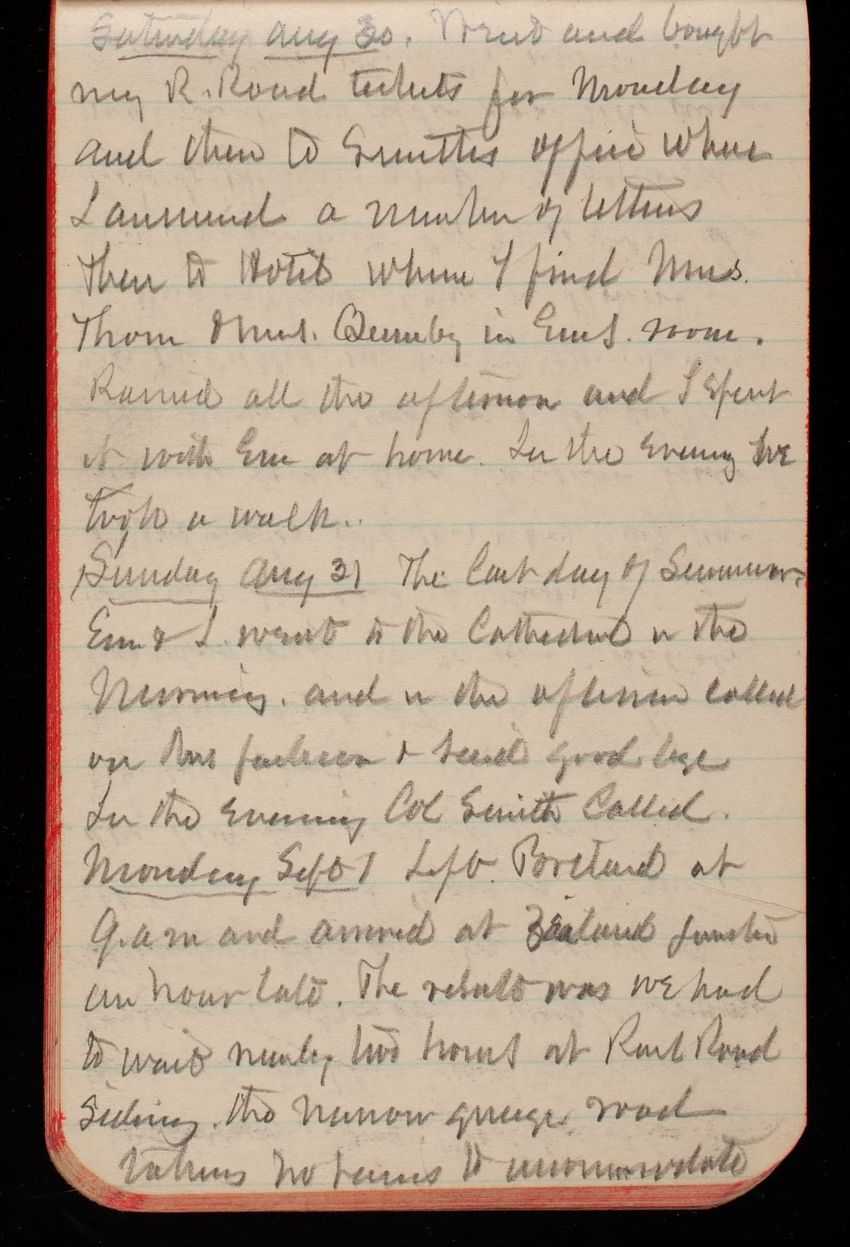 Saturday Aug 30. Went and bought
my R. Road tickets for Monday
and then to Smiths office where
I answered a number of letters
Then to Hotel where I find Mrs.
Thom & Mrs. Quimby in Ems. room.
Rained all the afternoon and I spent
it with Em at home. In the evening we
took a walk.
Sunday Aug 31 The last day of Summer.
Em & I went to the Cathedral in the
Morning. and in the afternoon called
on Mrs & said good bye
In the evening Col Smith Called.
Monday Sept 1 Left Portland at
9. a m and arrived at Zealand
an hour late. The result was we had
to wait nearly two hours at Rail Road
Siding. the narrow guage road
taking no pains to accommodate